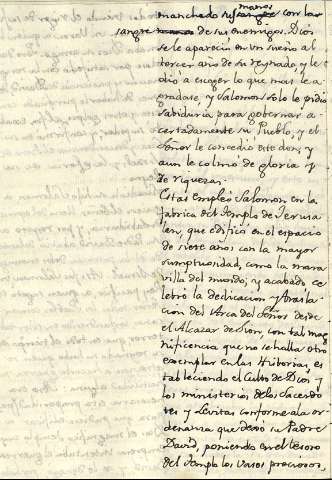 manos
manchado sus sangre con la
sangre de sus enemigos. Dios
se le apareció en un sueño al
tercer año de su reynado y le
dió a escoger lo que mas le a
gradase, y Salomon solo le pidió
Sabiduria para gobernar a
certadamente su Pueblo, y el
Señor le concedió este don, y
aun le colmó de gloria y
de riquezas.
Estas empleó Salomon en la
fabrica del Templo de Jerusa
len, que edificó en el espacio
de siete años con la mayor
sumptuosidad, como la mara
villa del mundo; y acabado ce
lebró la dedicacion y trasla
cion del Arca del Señor desde
el Alcazar de Sion, con tal mag
nificencia que no se halla otro
exemplar en las Historias, es
tableciendo el Culto de Dios y
los ministerios de los Sacerdo
tes y Levitas conforme a la or
denanza que dexó su Padre
David, poniendo en el tesoro
del Templo los Vasos preciosos,